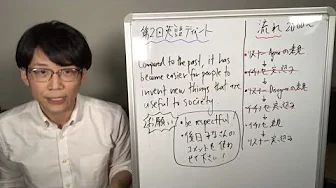 第2回英語ディベート
Compared to the past, it has
become easier for people to
invent new things that are
useful to society.
お願い
・be respectful
・後日みなさんの
コメントを使わ
せて下さい！
流れ 20:00〜
リスナー Agreeの意見
↓
イチノセ
↓
リスナー Disagreeの意見
↓
イチノセ
↓
リスナー